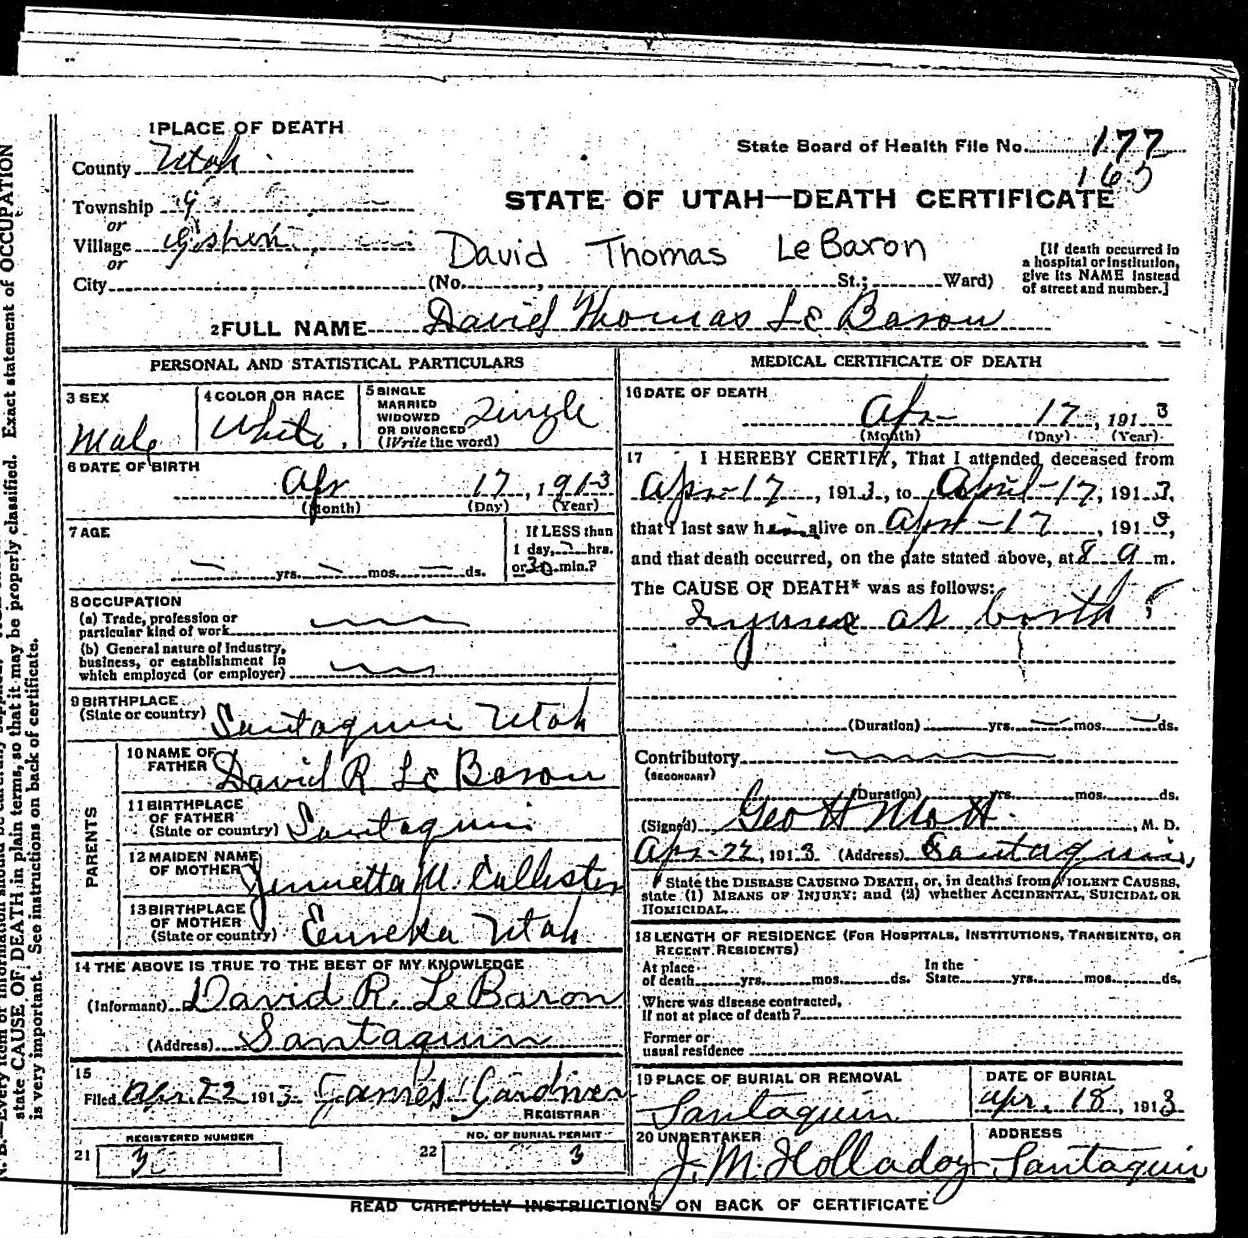 1 PLACE OF DEATH
County Utah
State Board of Health File No. 177
165
Township
or
Village
or
City
STATE OF UTAH—DEATH CERTIFICATE
David Thomas LeBaron
(No. , St.; Ward)
[If death occurred in
a hospital or institution,
give its NAME instead
of street and number.]
2 FULL NAME David Thomas Le Baron
PERSONAL AND STATISTICAL PARTICULARS
3 SEX
Male
4 COLOR OR RACE
White.
5 SINGLE
MARRIED
WIDOWED
OR DIVORCED
(Write the word)
Single
6 DATE OF BIRTH
Apr 17, 1913
(Month) (Day) (Year)
7 AGE
yrs. mos. ds.
If LESS than
1 day, hrs.
or 30 min.?
8 OCCUPATION
(a) Trade, profession or
particular kind of work
(b) General nature of industry,
business, or establishment in
which employed (or employer)
9 BIRTHPLACE
(State or country) Santaquin Utah
PARENTS
10 NAME OF
FATHER David R Le Baron
11 BIRTHPLACE
OF FATHER
(State or country) Santaquin
12 MAIDEN NAME
OF MOTHER M. Callister
13 BIRTHPLACE
OF MOTHER
(State or country) Eureka Utah
14 THE ABOVE IS TRUE TO THE BEST OF MY KNOWLEDGE
(Informant) David R. LeBaron
(Address) Santaquin
15
Filed Apr. 22 1913 James Gardner
REGISTRAR
REGISTERED NUMBER
21 3
NO. OF BURIAL PERMIT
22 3
MEDICAL CERTIFICATE OF DEATH
16 DATE OF DEATH
Apr 17, 1913
(Month) (Day) (Year)
17 I HEREBY CERTIFY, That I attended deceased from
Apr-17, 1913, to April-17, 1913,
that I last saw him alive on April-17, 1913,
and that death occurred, on the date stated above, at 8 a m.
The CAUSE OF DEATH* was as follows:
at birth
(Duration) yrs. mos. ds.
Contributory
(SECONDARY)
(Duration) yrs. mos. ds.
(Signed) Geo H Mott. M. D.
Apr-22, 1913 (Address) Santaquin,
* State the DISEASE CAUSING DEATH, or, in deaths from VIOLENT CAUSES,
state (1) MEANS OF INJURY; and (2) whether ACCIDENTAL, SUICIDAL OR
HOMICIDAL.
18 LENGTH OF RESIDENCE (FOR HOSPITALS, INSTITUTIONS, TRANSIENTS, OR
RECENT RESIDENTS)
At place
of death yrs. mos. ds.
In the
State yrs. mos. ds.
Where was disease contracted,
if not at place of death?
Former or
usual residence
19 PLACE OF BURIAL OR REMOVAL
Santaquin
DATE OF BURIAL
Apr. 18, 1913
20 UNDERTAKER
J. M. Holladay
ADDRESS
Santaquin
READ CAREFULLY INSTRUCTIONS ON BACK OF CERTIFICATE
state CAUSE OF DEATH in plain terms, so that it may be properly classified. Exact statement of OCCUPATION
is very important. See instructions on back of certificate.